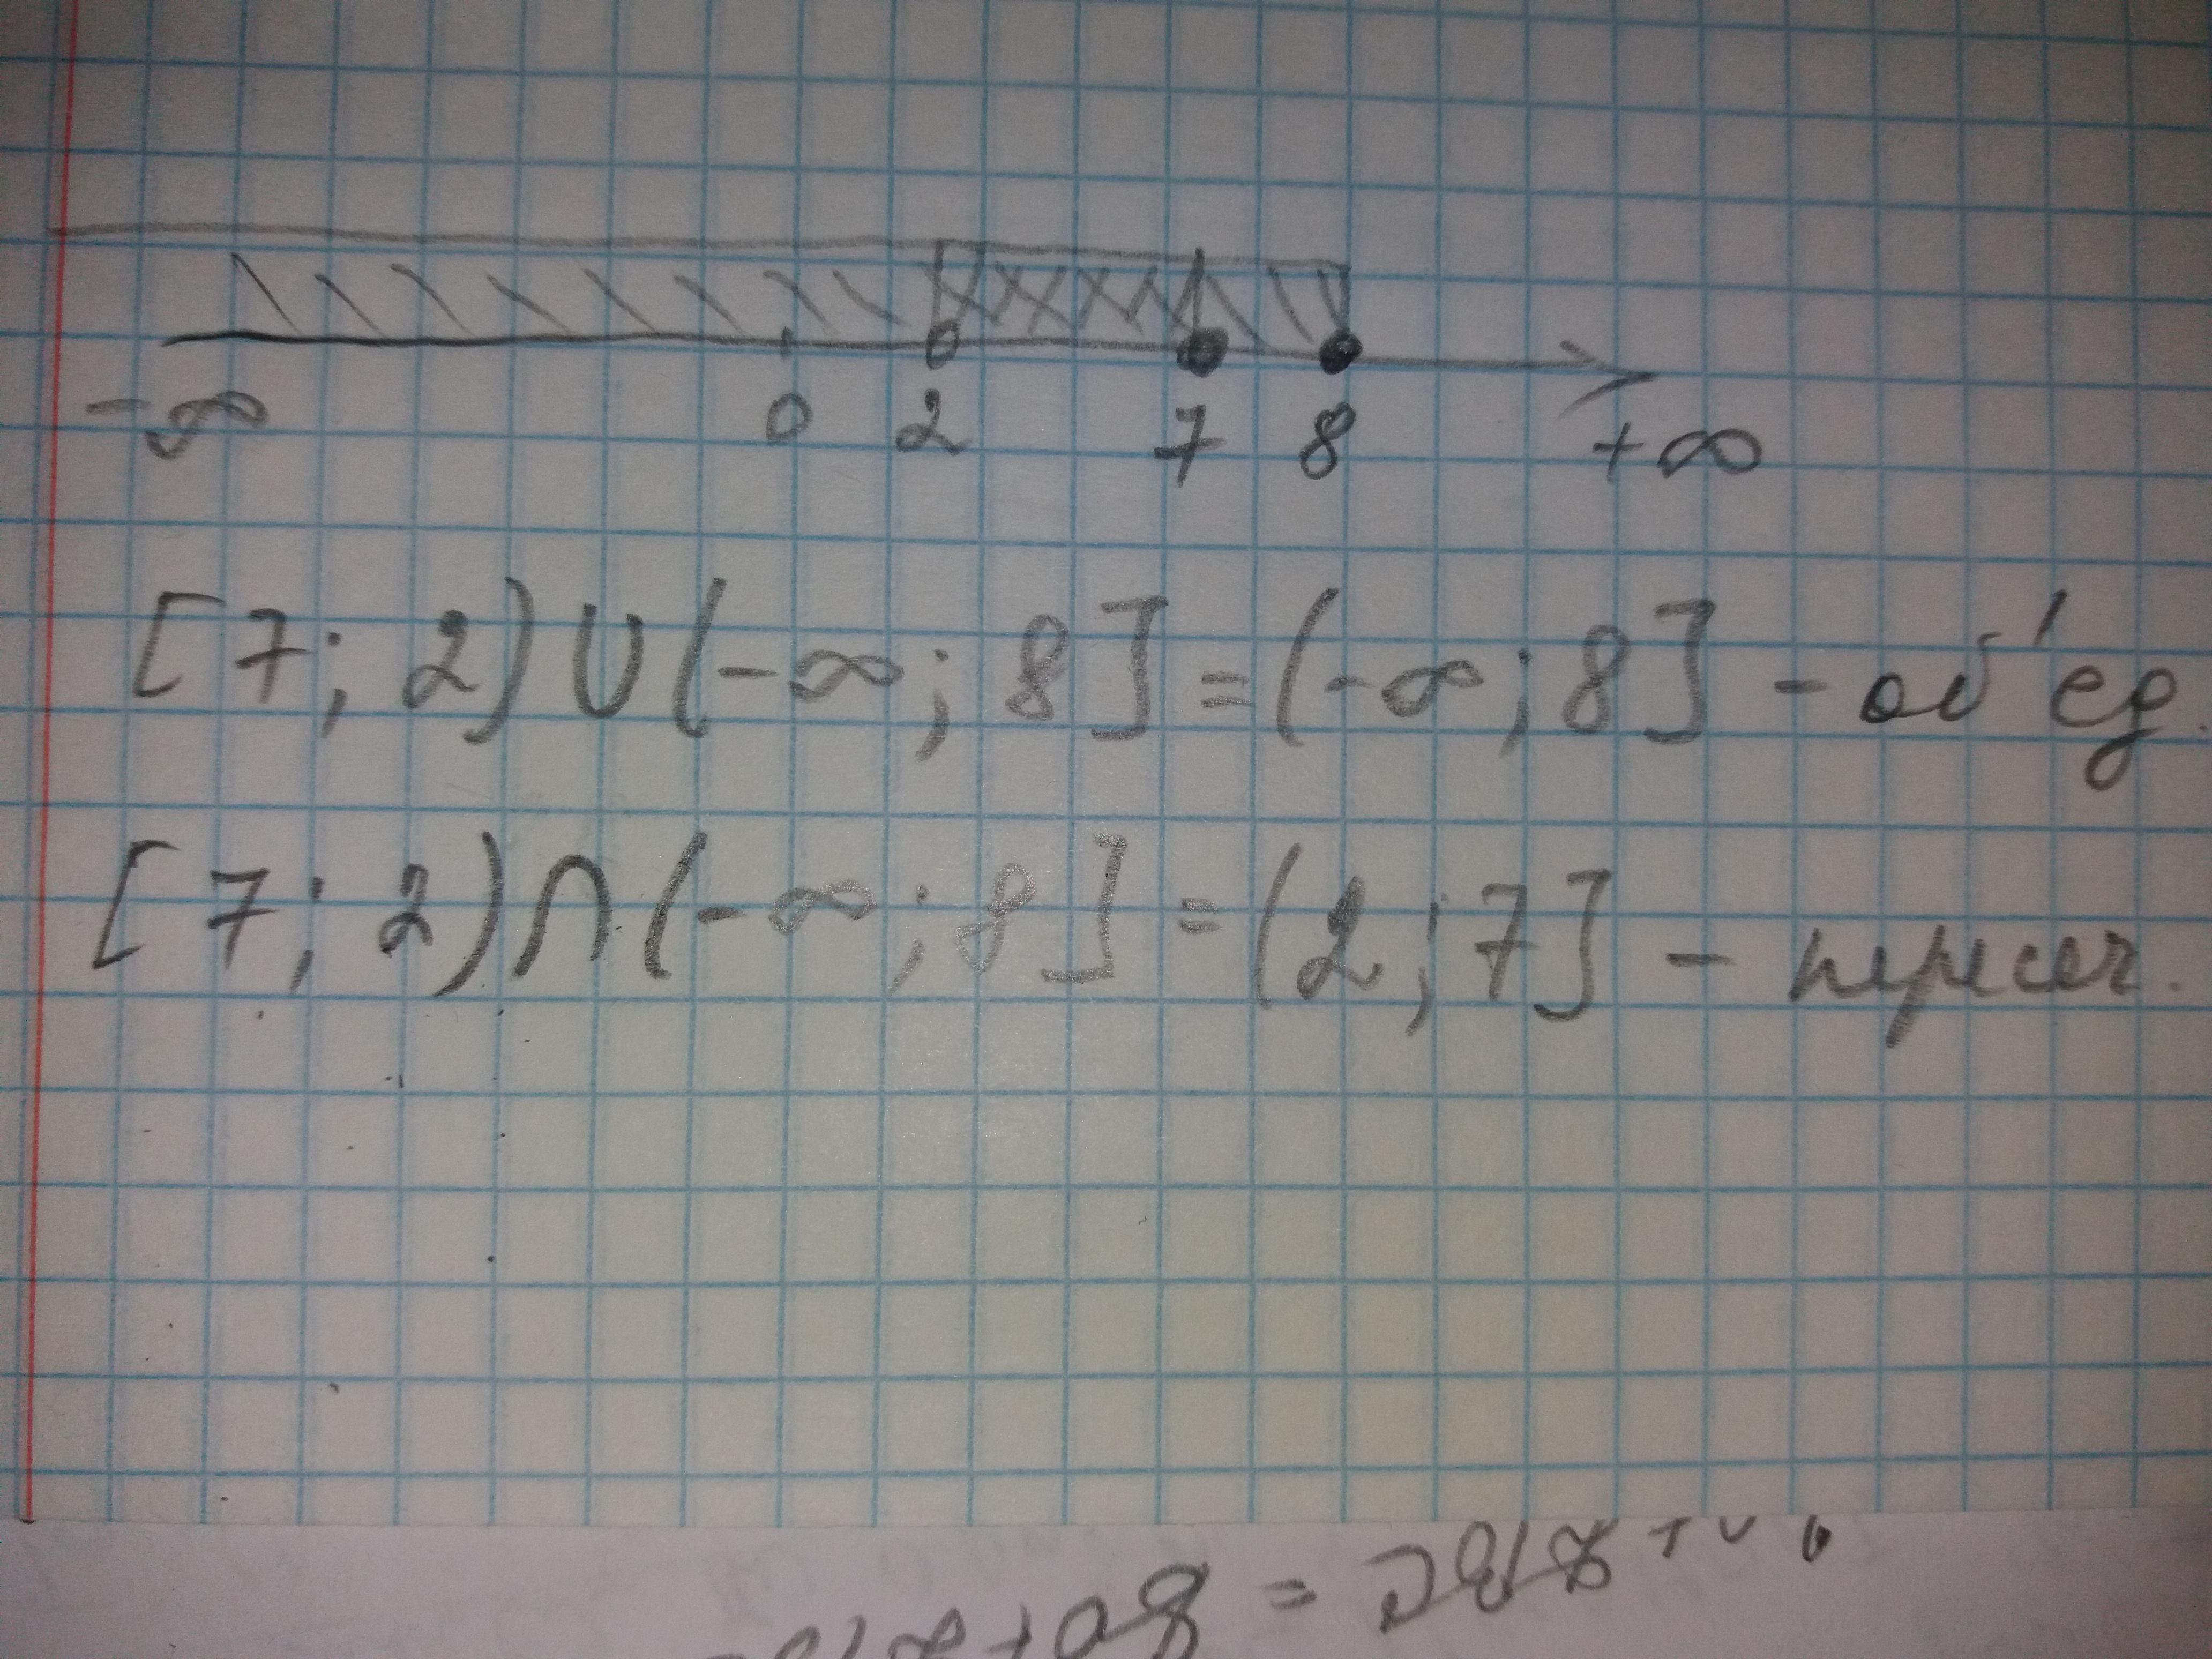 -∞ 0 2 7 8 +∞
[7; 2) ∪ (-∞; 8] = (-∞; 8] - об'ед.
[7; 2) ∩ (-∞; 8] = (2; 7] - пересеч.